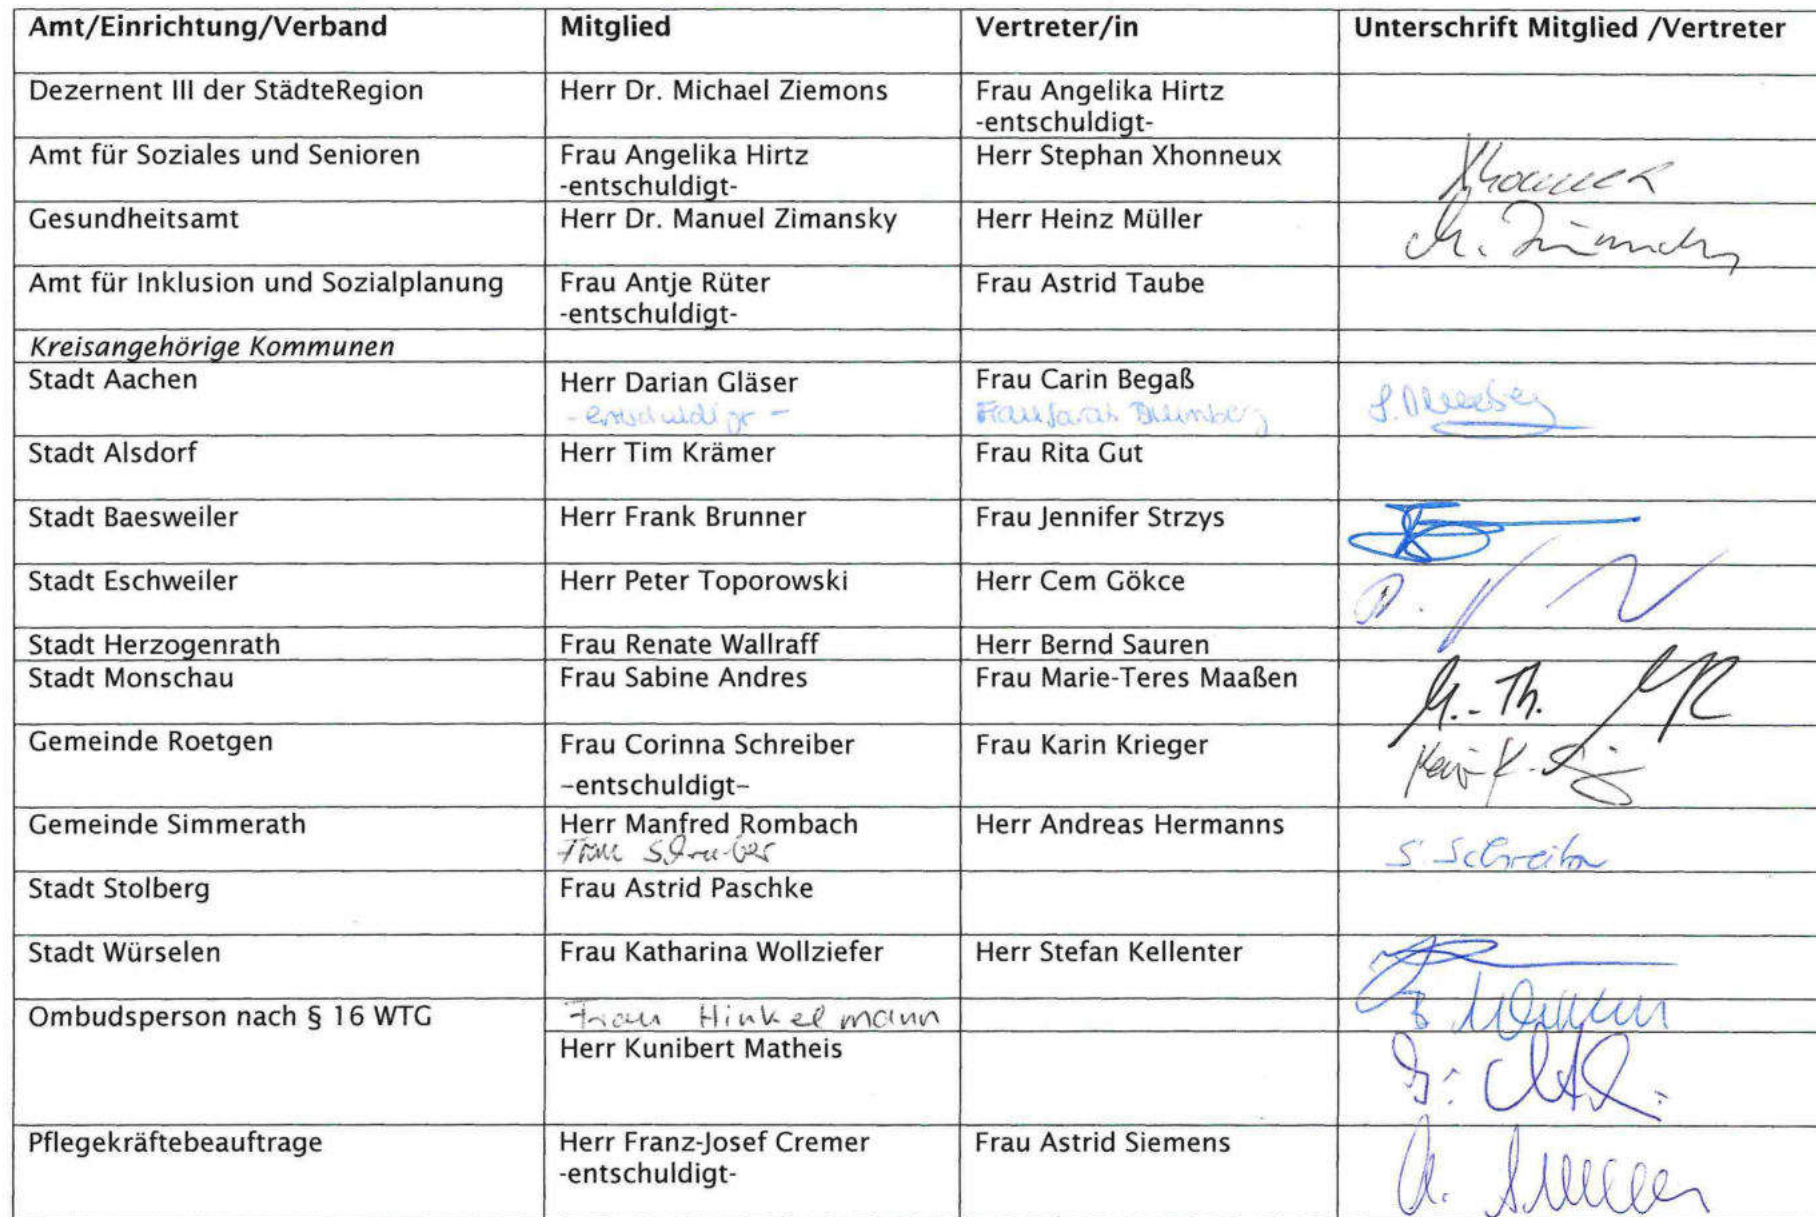 Amt/Einrichtung/Verband Mitglied Vertreter/in Unterschrift Mitglied /Vertreter
Dezernent III der StädteRegion Herr Dr. Michael Ziemons Frau Angelika Hirtz
-entschuldigt-
Amt für Soziales und Senioren Frau Angelika Hirtz Herr Stephan Xhonneux
-entschuldigt-
Gesundheitsamt Herr Dr. Manuel Zimansky Herr Heinz Müller
Amt für Inklusion und Sozialplanung Frau Antje Rüter Frau Astrid Taube
-entschuldigt-
Kreisangehörige Kommunen
Stadt Aachen Herr Darian Gläser Frau Carin Begaß
-entschuldigt- Frau Sarah
Stadt Alsdorf Herr Tim Krämer Frau Rita Gut
Stadt Baesweiler Herr Frank Brunner Frau Jennifer Strzys
Stadt Eschweiler Herr Peter Toporowski Herr Cem Gökce
Stadt Herzogenrath Frau Renate Wallraff Herr Bernd Sauren
Stadt Monschau Frau Sabine Andres Frau Marie-Teres Maaßen M.-Th.
Gemeinde Roetgen Frau Corinna Schreiber Frau Karin Krieger
-entschuldigt-
Gemeinde Simmerath Herr Manfred Rombach Herr Andreas Hermanns
Frau Schreiber S. Schreiber
Stadt Stolberg Frau Astrid Paschke
Stadt Würselen Frau Katharina Wollziefer Herr Stefan Kellenter
Ombudsperson nach § 16 WTG Frau Hinkelmann
Herr Kunibert Matheis
Pflegekräftebeauftrage Herr Franz-Josef Cremer Frau Astrid Siemens
-entschuldigt- A. Siemens